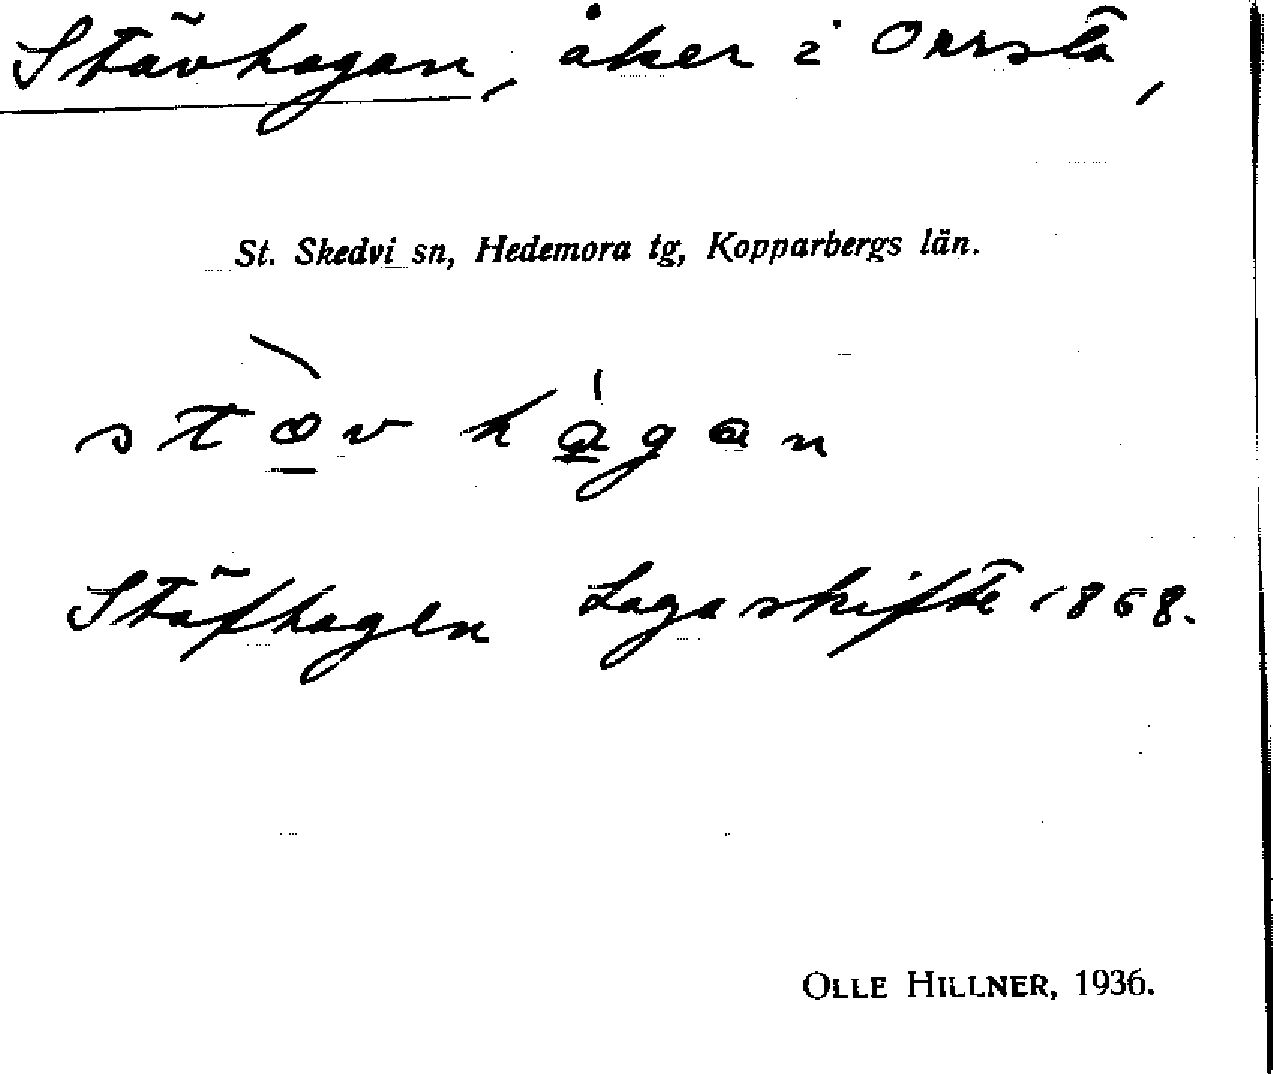 Stavhagan, åker i Orrsta,
St. Skedvi sn, Hedemora tg, Kopparbergs län.
Stafhagen Laga skifte 1868.
OLLE HILLNER, 1936.